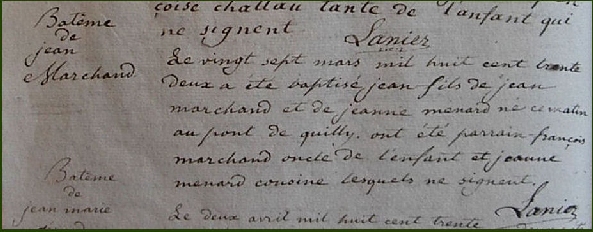 coise challau tante de l'anfant qui
ne signent.
Lanier
Batême
de
jean
Marchand
Le vingt sept mars mil huit cent trente
deux a été baptisé jean fils de jean
marchand et de jeanne menard né ce matin
au pont de quilly. ont été parrain françois
marchand oncle de l'enfant et jeanne
menard cousine lesquels ne signent.
Lanier
Batême
de
jean marie
Le deux avril mil huit cent trente